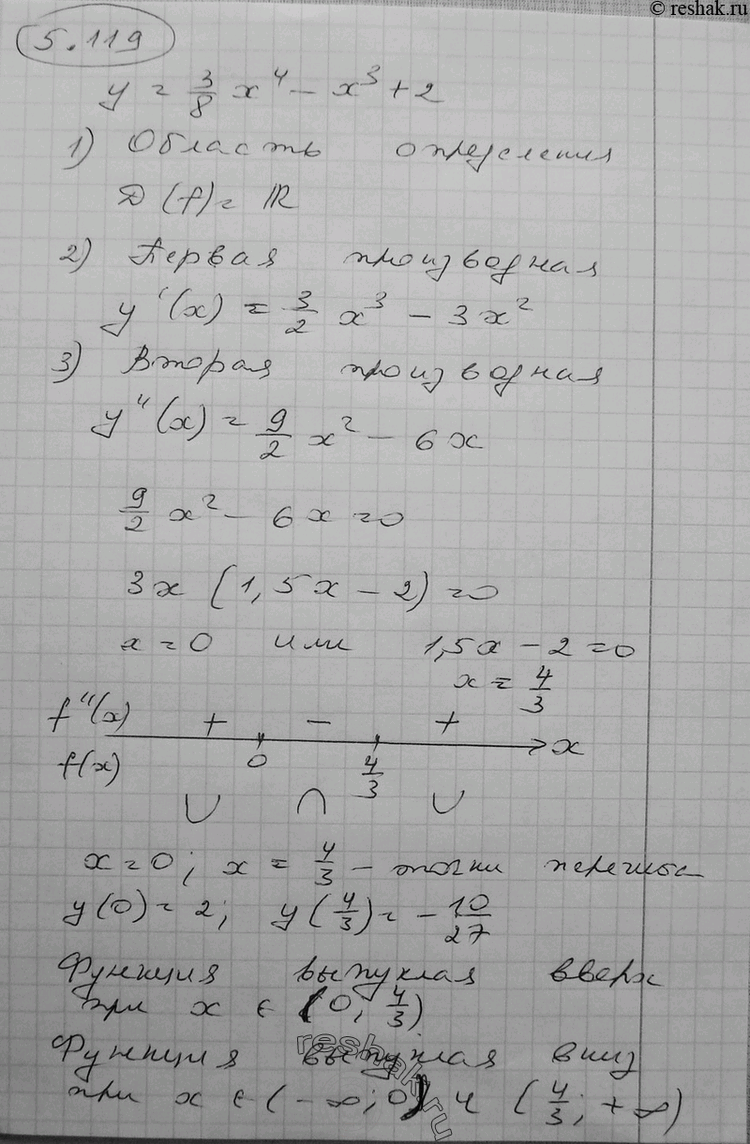 © reshak.ru
5.119
y = 3/8 x⁴ - x³ + 2
1) Область определения
D(f) = ℝ
2) Первая производная
y'(x) = 3/2 x³ - 3x²
3) Вторая производная
y''(x) = 9/2 x² - 6x
9/2 x² - 6x = 0
3x (1,5x - 2) = 0
x = 0 или 1,5x - 2 = 0
x = 4/3
f''(x) + - + x
f(x) 0 4/3
∪ ∩ ∪
x = 0; x = 4/3 - точки перегиба
y(0) = 2; y(4/3) = - 10/27
Функция выпуклая вверх
при x ∈ (0; 4/3)
Функция выпуклая вниз
при x ∈ (-∞; 0) и (4/3; +∞)
reshak.ru